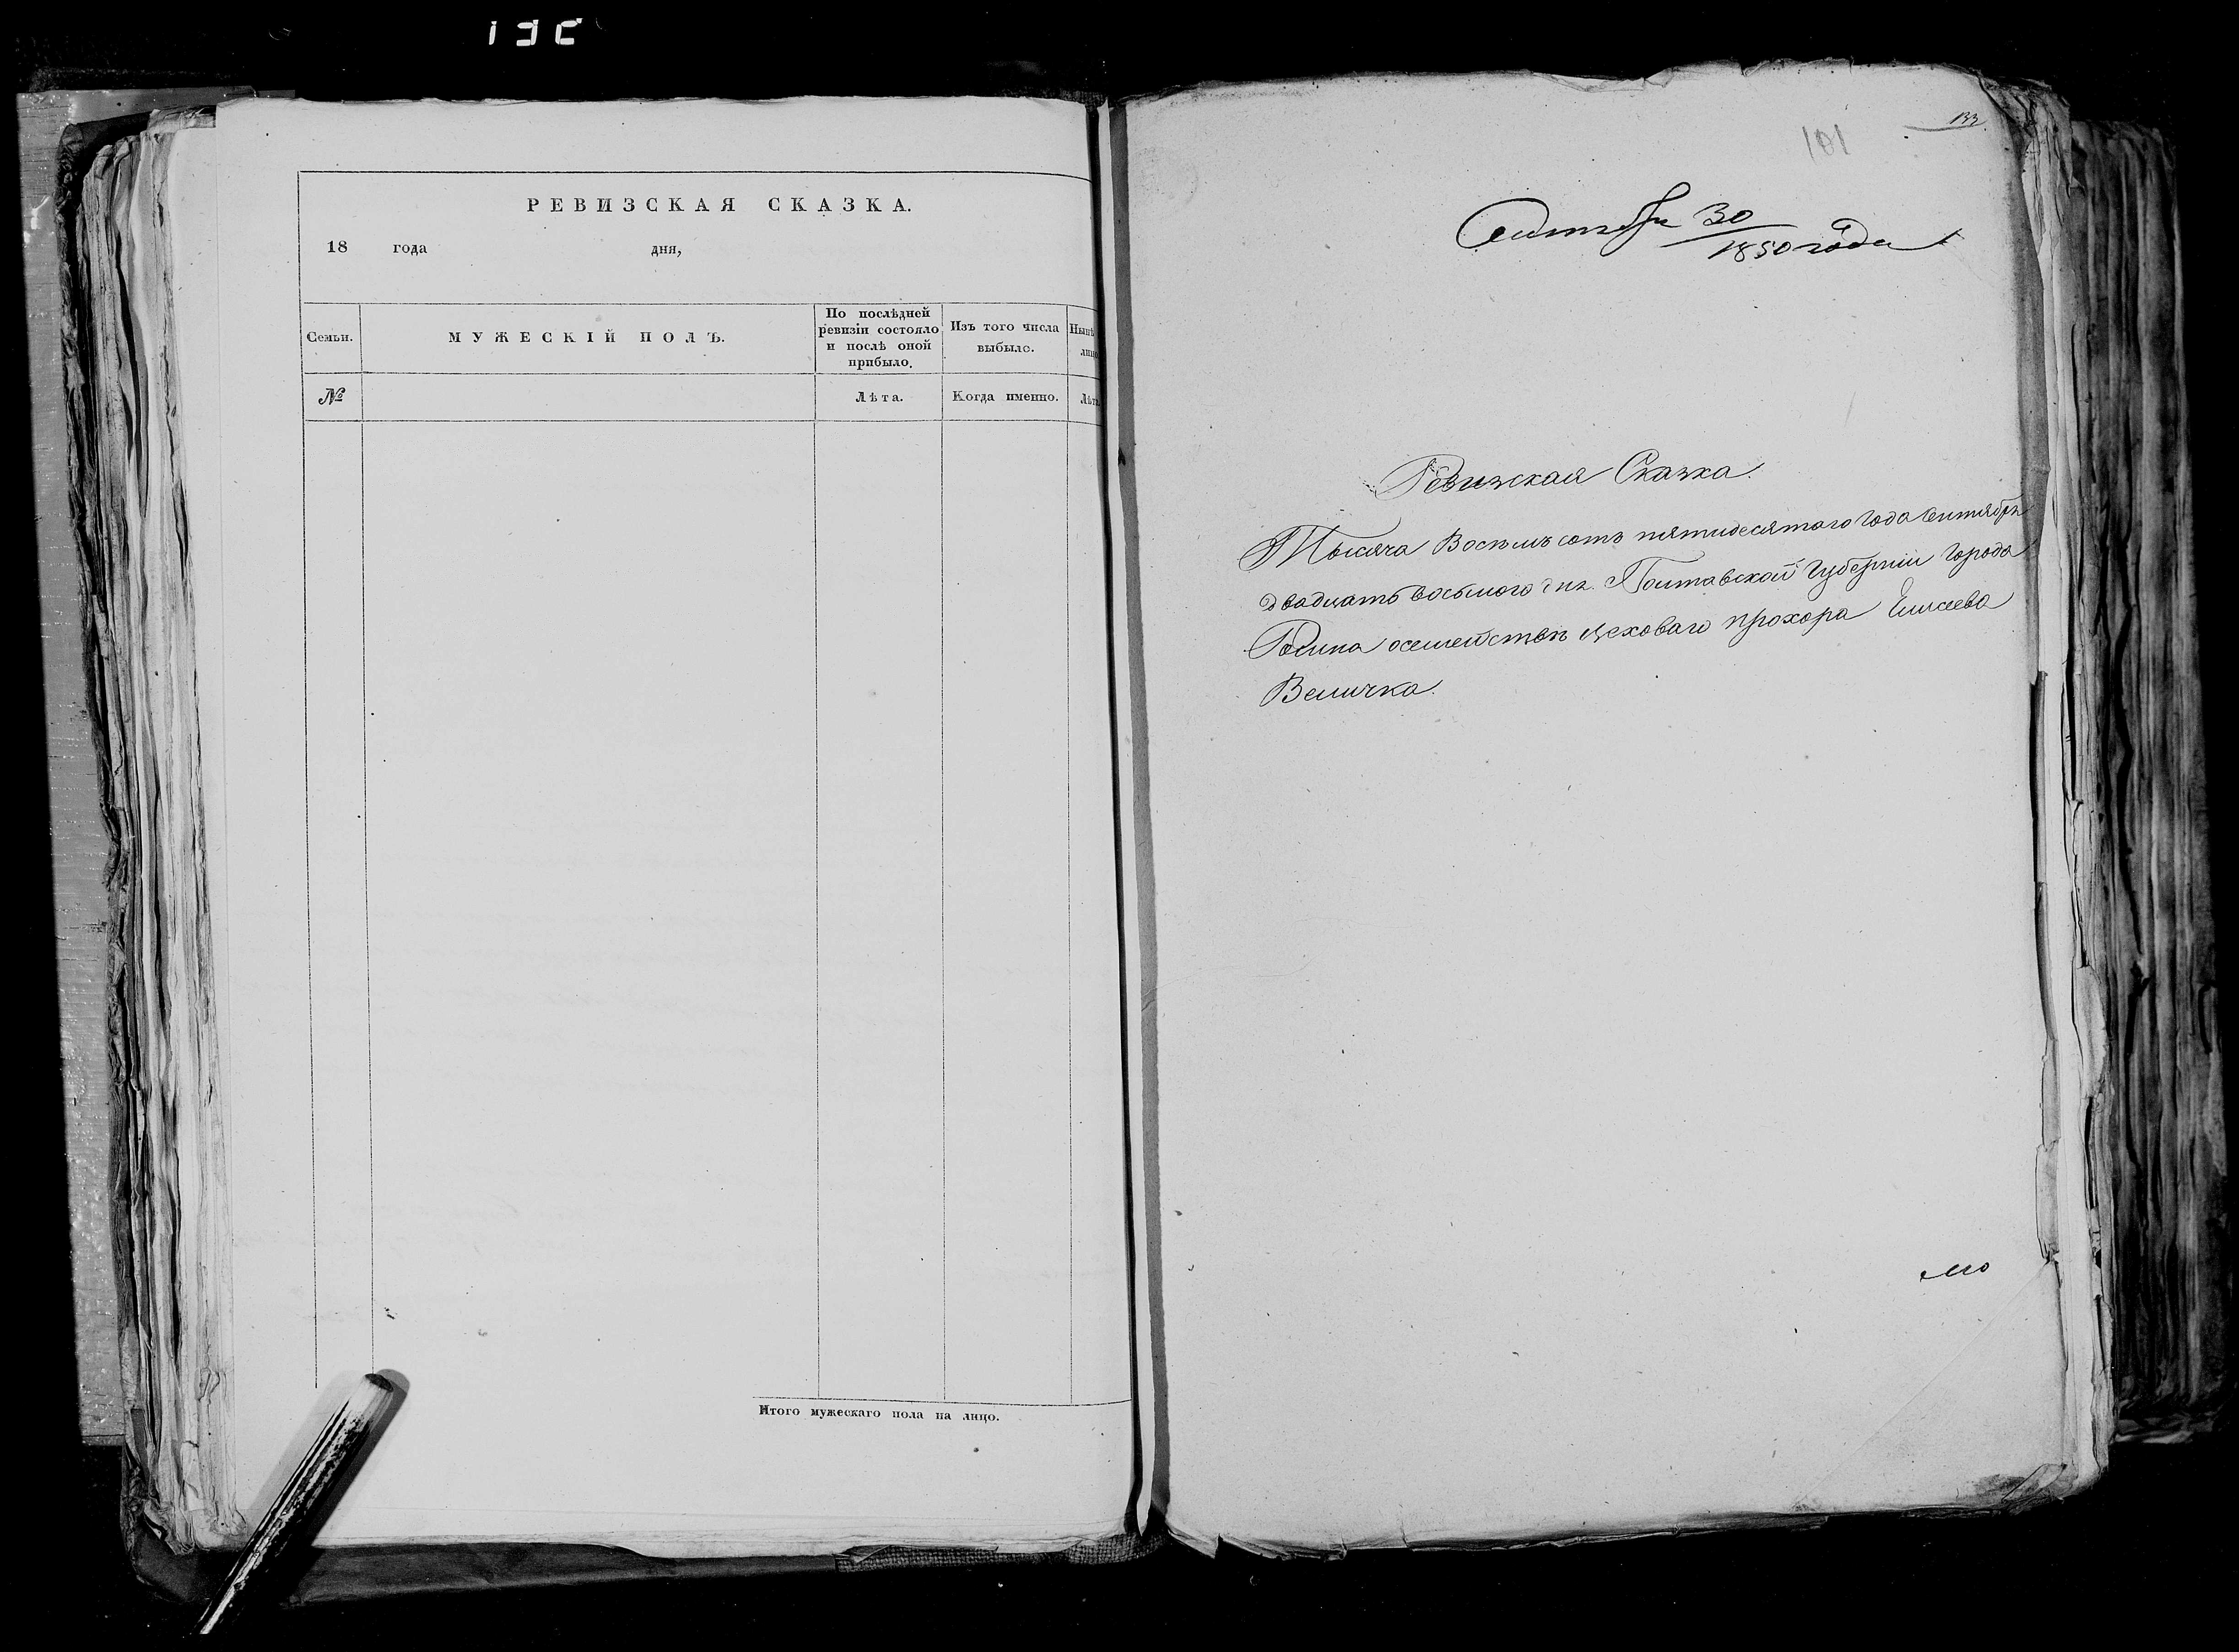 РЕВИЗСКАЯ СКАЗКА.
18 года дня,
Семьи.
МУЖЕСКІЙ ПОЛЪ.
По послѣдней
ревизіи состояло
и послѣ оной
прибыло.
Изъ того числа
выбыло.
Нынѣ
лицо
№
Лѣта.
Когда именно.
Лѣта
Итого мужескаго пола на лицо.
133
101
Сентября 30
1850 года
Ревизская Сказка.
Тысяча Восемь сотъ пятидесятого Года Сентября
двадцать восьмого дня. Полтавской Губерніи Города
Ромна осемействѣ цеховаго прохора Елисеева
Величка.